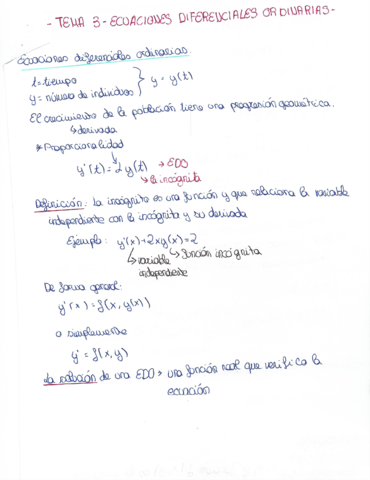 - TEMA 3 - ECUACIONES DIFERENCIALES ORDINARIAS -
Ecuaciones diferenciales ordinarias:
t = tiempo
y = número de individuos } y = y(t)
El crecimiento de la población tiene una progresión geométrica.
↳ derivada
* Proporcionalidad
y'(t) = 2 y(t) → EDO
↳ la incógnita
Definición: La incógnita es una función y que relaciona la variable
independiente con la incógnita y su derivada
Ejemplo: y'(x) + 2xy(x) = 2
↳ variable independiente
↳ función incógnita
De forma general:
y'(x) = f(x, y(x))
o simplemente
y' = f(x, y)
La solución de una EDO → una función real que verifica la
ecuación